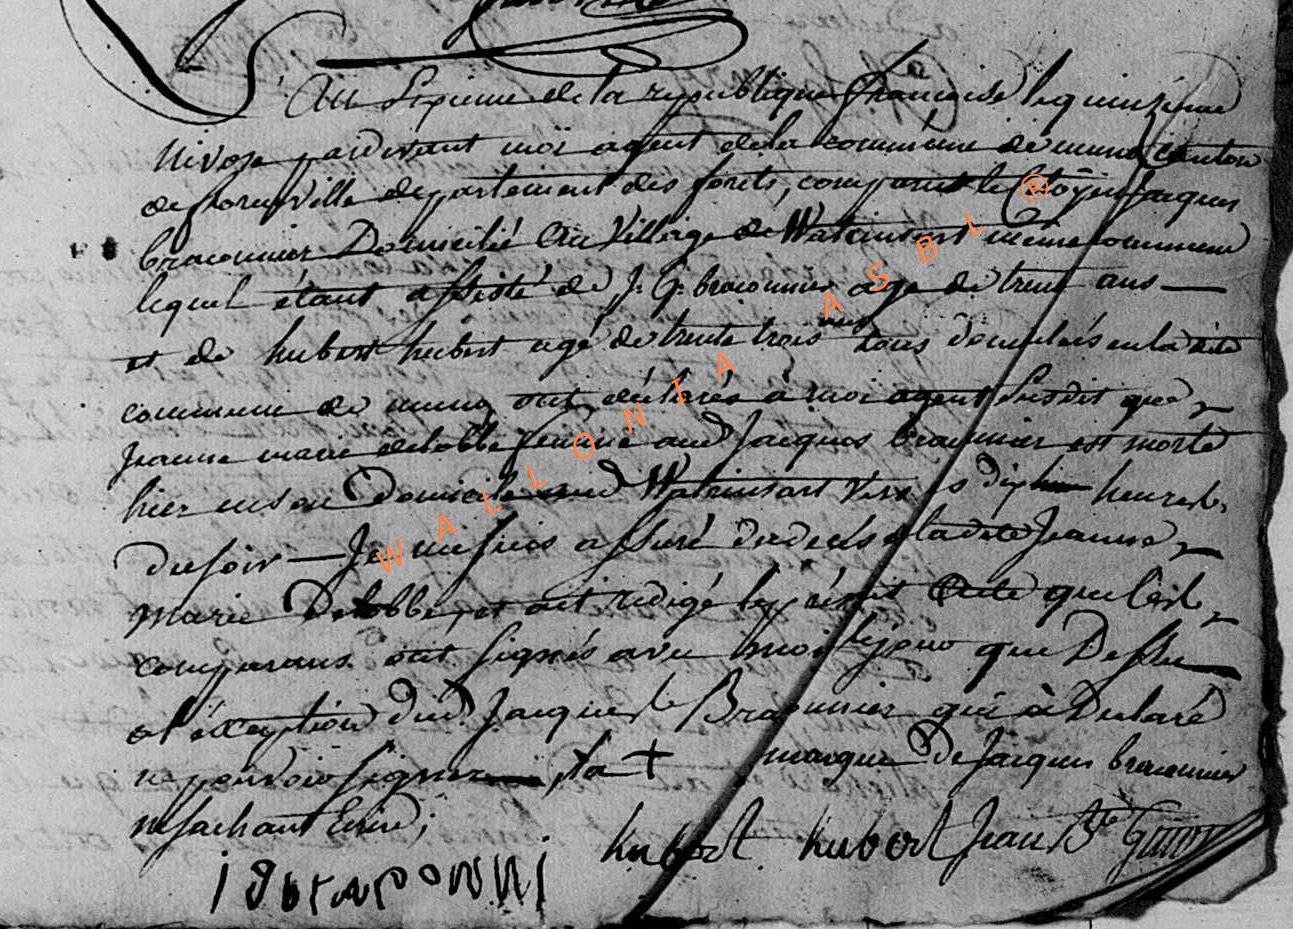 An septieme de la republique francoise le quinzieme
Nivose pardevant moi agent de la commune de muno canton
de florenville departement des forets, comparut le citoÿen jacques
braconnier Domicilié au Village de Watrinsart même commune
lequel étant assisté de J. G. braconnier agé de trente ans —
et de hubert hubert agé de trente trois ans tous domiciliés en la dite
commune de muno ont déclarés à moi agent susdit que
jeanne marie delobbe femme aud jacques braconnier est morte
hier en son Domicile aud Watrinsart vers les dix heures
du soir — Je me suis assuré du deces de la dite Jeanne
Marie Delobbe, et ait redigé le présent Acte que les
comparans ont signés avec moi que Dessus
a l'éxception dud Jacques Braconnier qui à Declaré
ne pouvoir signer — la + marque De Jacques braconnier
ne sachant Ecrire;
hubert hubert Jean Bte
J G braconni
WALLONIA ASBL ®